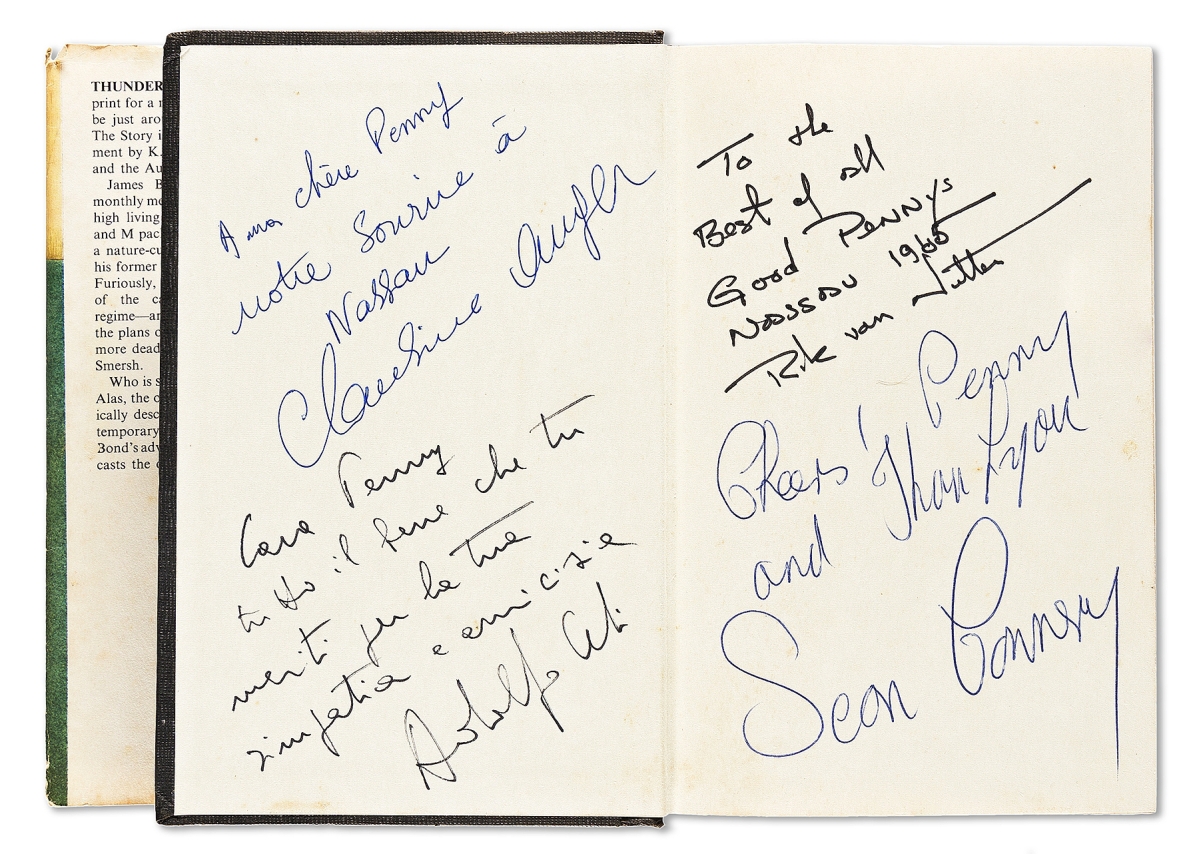 THUNDER
print for a
be just aro
The Story i
ment by K.
and the Au
James B
monthly me
high living
and M pac
a nature-cu
his former
Furiously,
of the ca
regime—an
the plans o
more dead
Smersh.
Who is s
Alas, the c
ically desc
temporary
Bond's adv
casts the
A ma chère Penny
notre Sourire à
Nassau
Claudine Auger
Cara Penny
tutto il bene che tu
meriti per la tua
simpatia e amicizia
Adolfo Celi
To the
Best of all
Good PENNYs
Nassau 1965
Rik van Nutter
Cheers Penny
and Thank you
Sean Connery